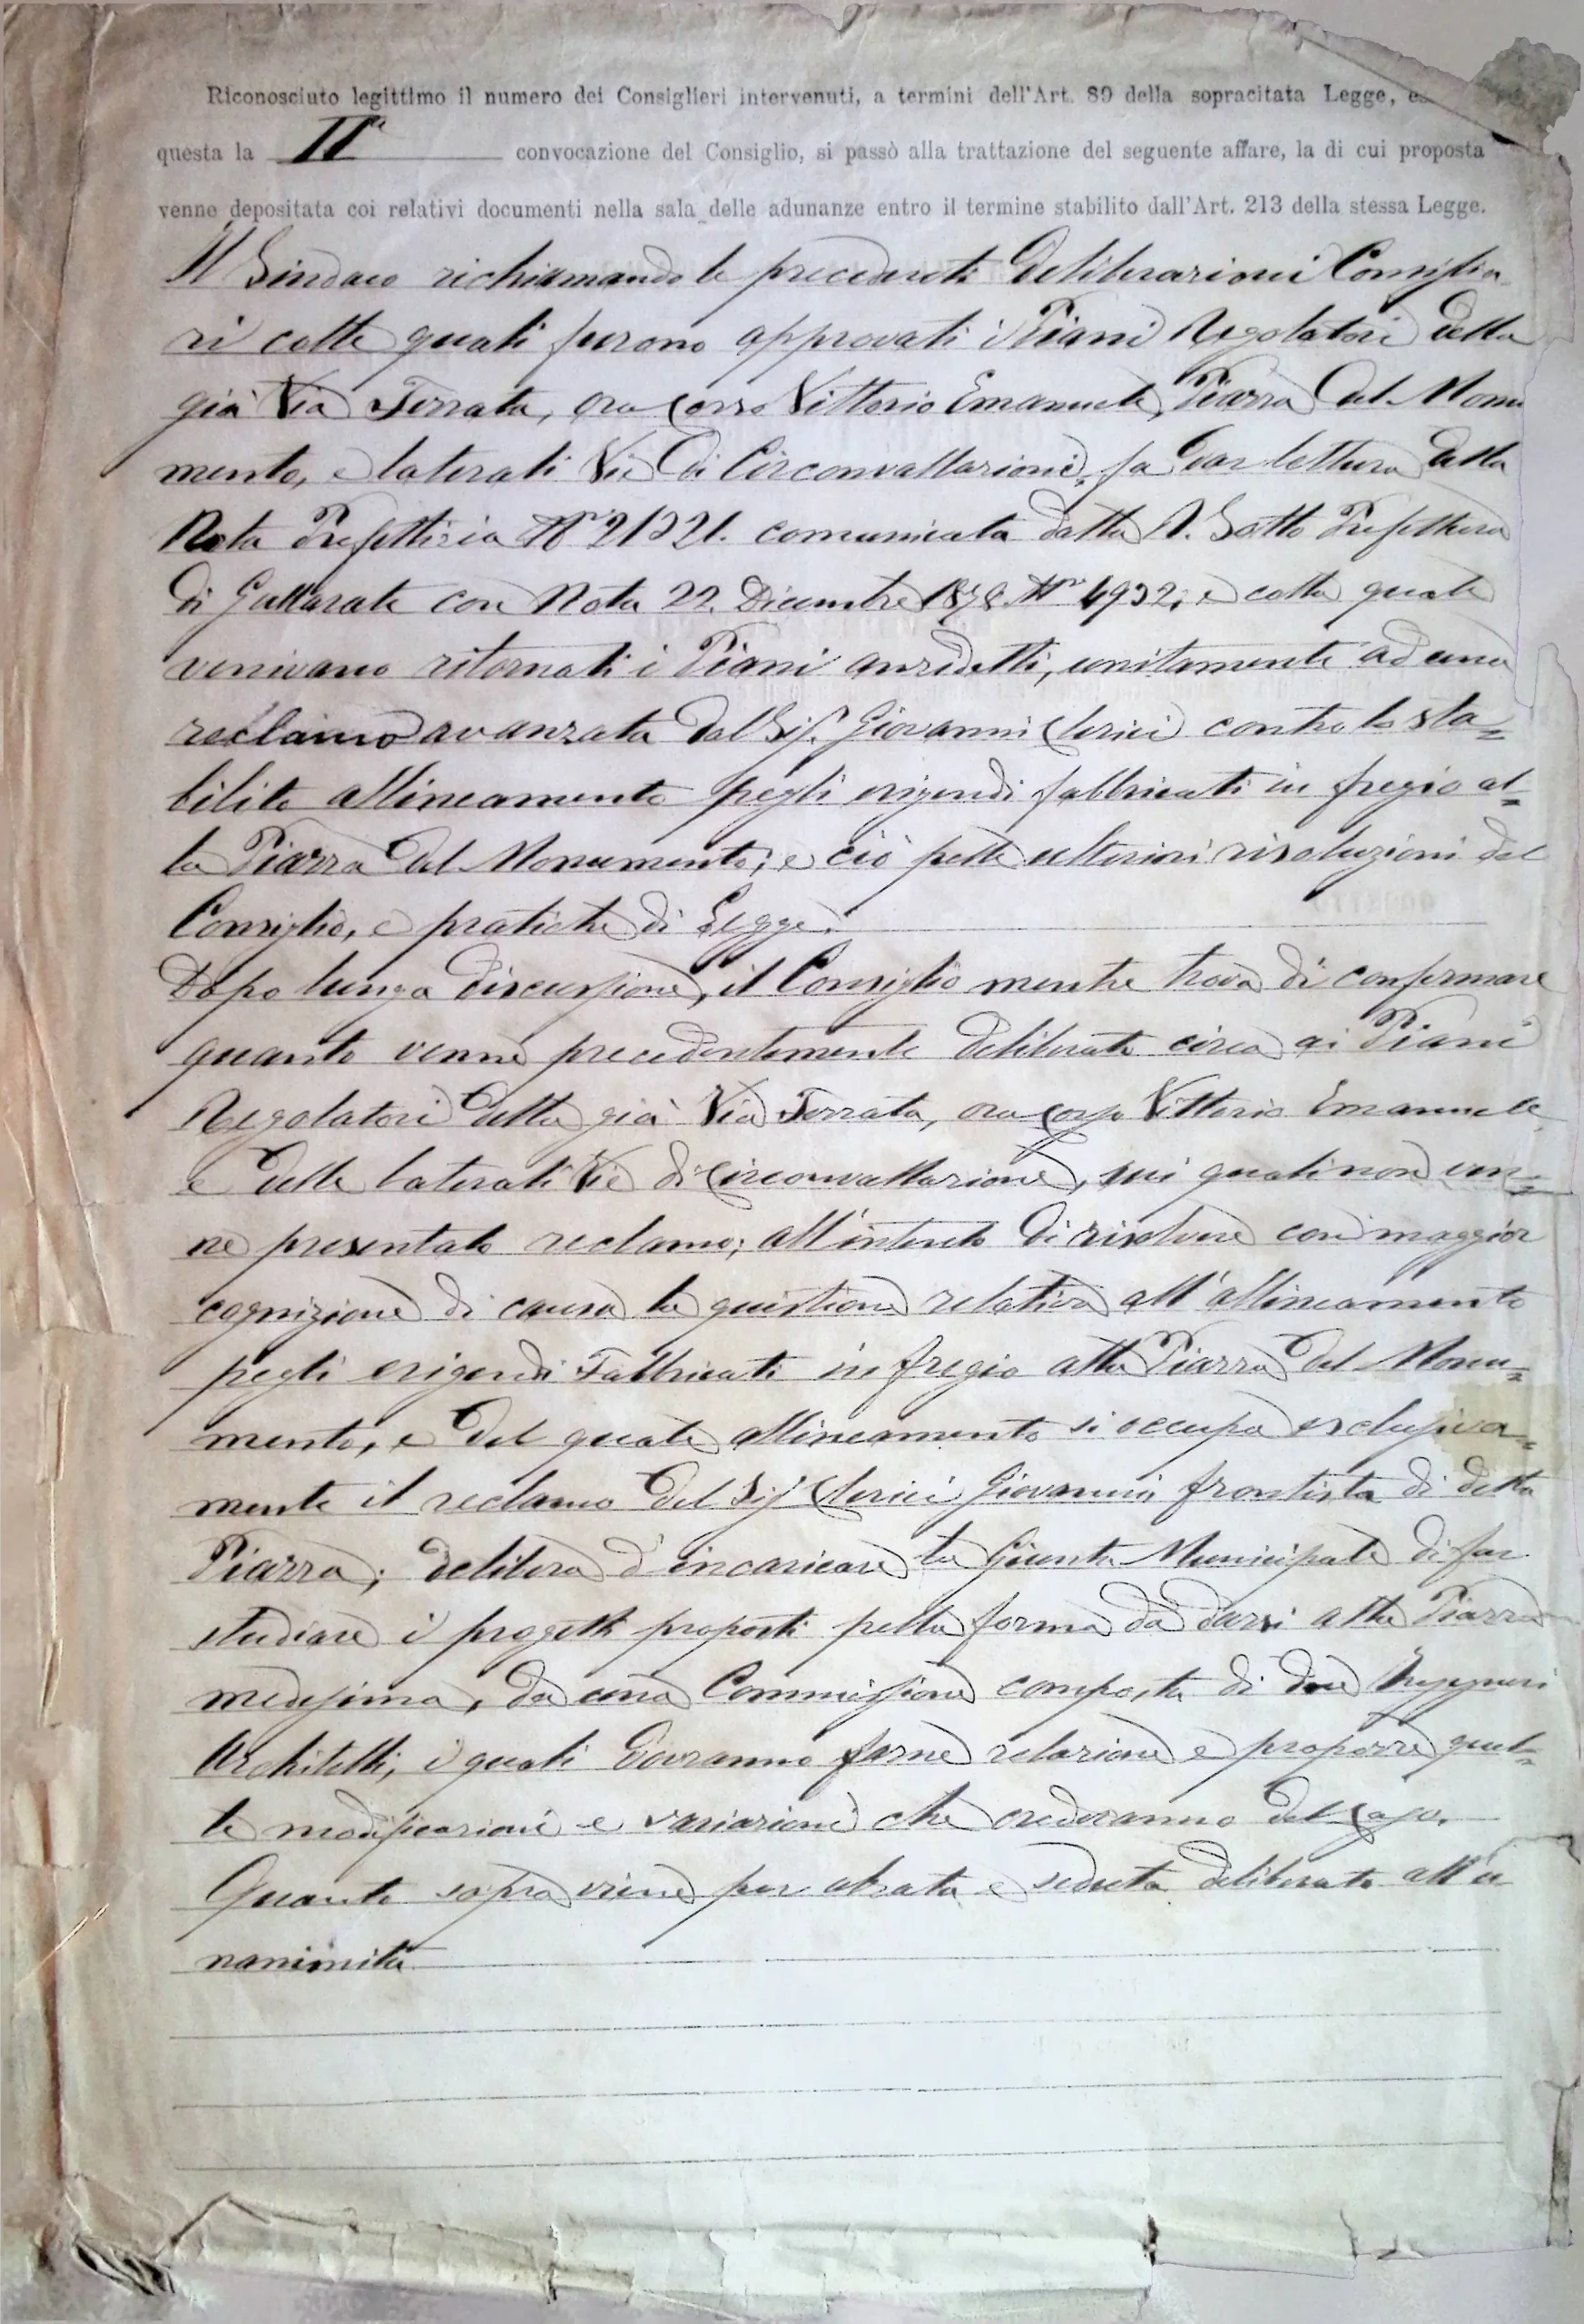 Riconosciuto legittimo il numero dei Consiglieri intervenuti, a termini dell'Art. 89 della sopracitata Legge, es
questa la IIa convocazione del Consiglio, si passò alla trattazione del seguente affare, la di cui proposta
venne depositata coi relativi documenti nella sala delle adunanze entro il termine stabilito dall'Art. 213 della stessa Legge.
Il Sindaco richiamando le precedenti deliberazioni Consiglia
ri colle quali furono approvati i Piani Regolatori della
già Via Ferrata, ora Corso Vittorio Emanuele, Piazza del Monu
mento, e laterali Vie di Circonvallazione, fa dar lettura della
Nota Prefettizia No 21221. comunicata dalla R. Sotto Prefettura
di Gallarate con Nota 22. Dicembre 1878. No 4932, e colla quale
venivano ritornati i Piani anzidetti, unitamente ad una
reclamo avanzata dal Sig. Giovanni Clerici contro lo sta=
bilito allineamento pegli erigendi fabbricati in fregio al=
la Piazza del Monumento; e ciò pelle ulteriori risoluzioni del
Consiglio, e pratiche di Legge.
Dopo lunga discussione, il Consiglio mentre trova di confermare
quanto venne precedentemente deliberato circa ai Piani
Regolatori della già Via Ferrata, ora Corso Vittorio Emanuele
e delle laterali Vie di Circonvallazione, sui quali non ven=
ne presentato reclamo; all'intento di risolvere con maggior
cognizione di causa la quistione relativa all'allineamento
pegli erigendi Fabbricati in fregio alla Piazza del Monu=
mento, e del quale allineamento si occupa esclusiva=
mente il reclamo del Sig. Clerici Giovanni, frontista di detta
Piazza; delibera d'incaricare la Giunta Municipale di far
studiare i progetti proposti pella forma da darsi alla Piazza
medesima, da una Commissione composta di due Ingegneri
Architetti, i quali dovranno farne relazione e proporre quel=
le modificazioni e variazioni che crederanno del caso.
Quanto sopra viene per alzata e seduta deliberato all'u
nanimità